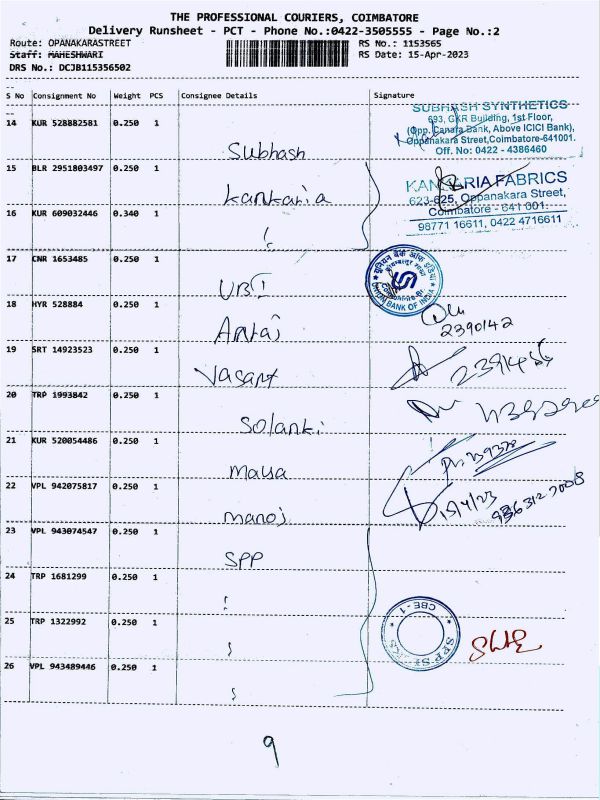 THE PROFESSIONAL COURIERS, COIMBATORE
Delivery Runsheet - PCT - Phone No.:0422-3505555 - Page No.:2
Route: OPANAKARASTREET RS No.: 1153565
Staff: MAHESHWARI RS Date: 15-Apr-2023
DRS No.: DCJB115356502
S No Consignment No Weight PCS Consignee Details Signature
14 KUR 528882581 0.250 1 Subhash
SUBHASH SYNTHETICS
693, GKR Building, 1st Floor,
(Opp. Canara Bank, Above ICICI Bank),
Oppanakara Street, Coimbatore-641001.
Off. No: 0422 - 4386460
15 BLR 2951803497 0.250 1 Kankaria
KANKARIA FABRICS
623-625, Oppanakara Street,
Coimbatore - 641 001.
98771 16611, 0422 4716611
16 KUR 609032446 0.340 1
17 CNR 1653485 0.250 1 UBI
UNION BANK OF INDIA
18 HYR 528884 0.250 1
2390142
19 SRT 14923523 0.250 1 Vasant
20 TRP 1993842 0.250 1 Solanki
21 KUR 520054486 0.250 1
22 VPL 942075817 0.250 1 Manoj
15/4/23
23 VPL 943074547 0.250 1 SPP
24 TRP 1681299 0.250 1
25 TRP 1322992 0.250 1
CBE - 1
26 VPL 943489446 0.250 1
9